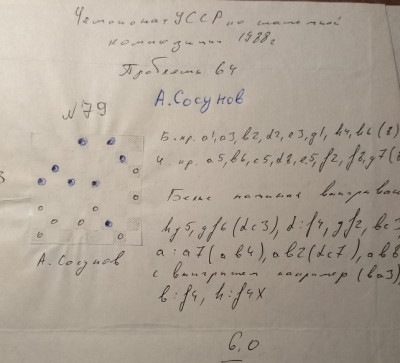 Чемпионат УССР по шашечной
композиции 1988г
Проблемы 64
N79
А.Сосунов
Б.пр. a1, a3, b2, d2, e3, g1, h4, b6 (8)
Ч. пр. a5, b6, c5, d8, e5, f2, f8, g7 (8
Белые начиная выигрываю
hg5, gf6 (dc3), d:f4, gf2, bc3
a:a7 (ab4), ab2 (dc7), ab8
А.Сосунов
с выигрышем например (ba3)
b:f4, h:f4X
6,0